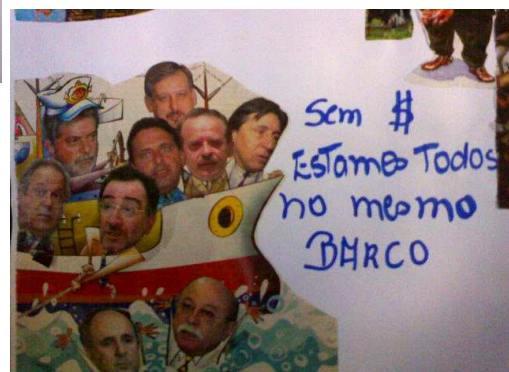 Sem $
ESTAMOS TODOS
no mesmo
BARCO